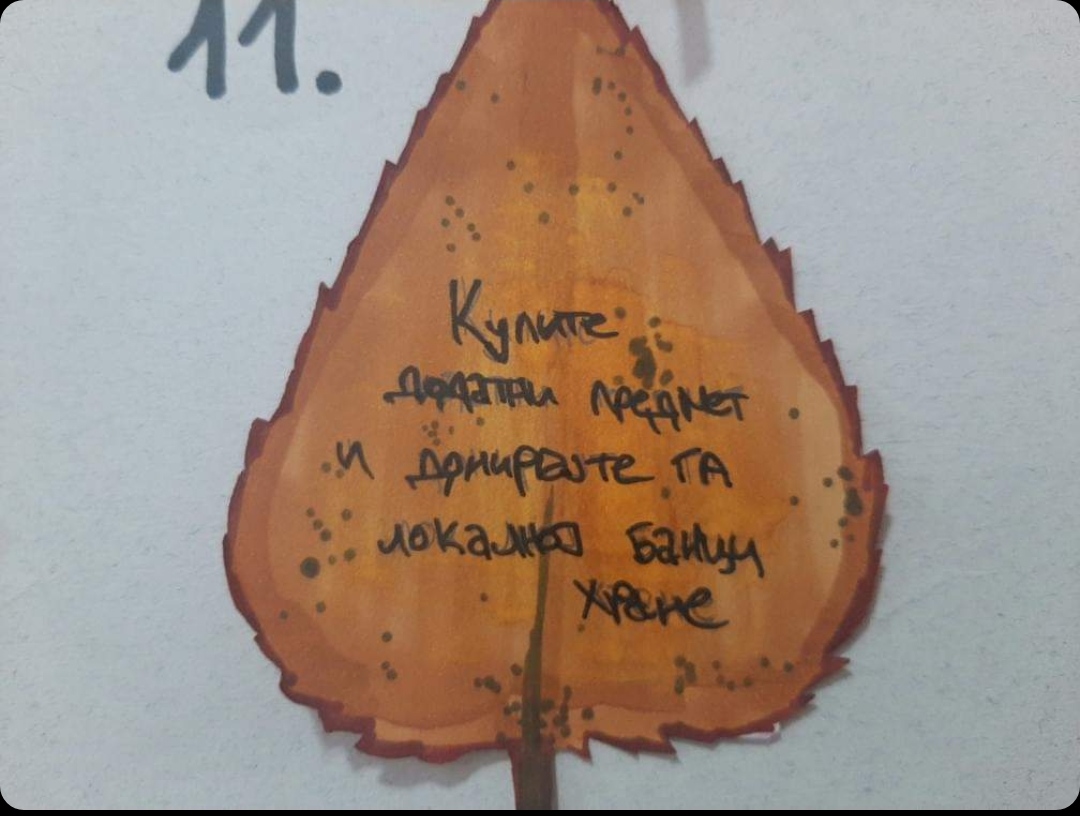 11.
Купите
додатни предмет
и донирајте га
локалној банци
хране